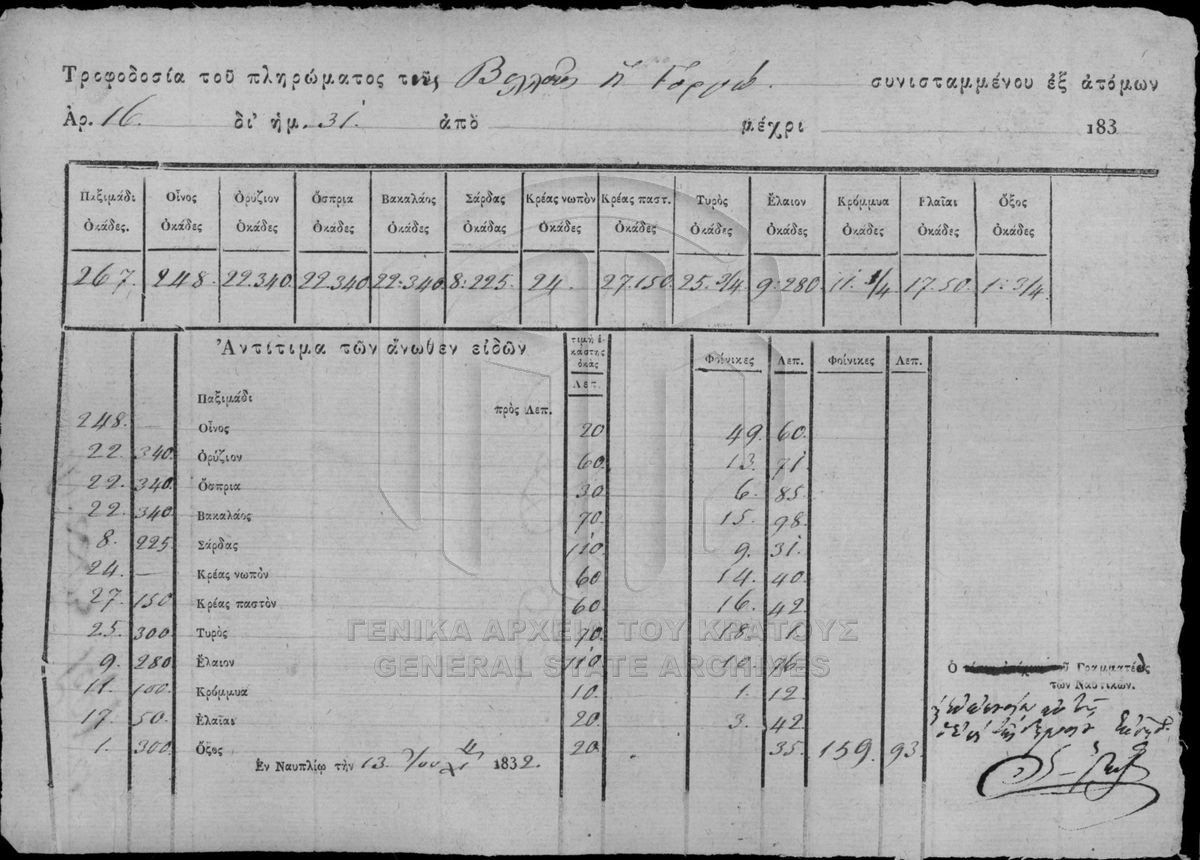 Τροφοδοσία τοῦ πληρώματος τοῦς ἡ Γοργώ. συνισταμμένου ἐξ ἀτόμων
Ἀρ. 16. δι' ἡμ. 31. ἀπὸ μέχρι 183
Παξιμάδι Οἶνος Ὀρύζιον Ὄσπρια Βακαλάος Σάρδας Κρέας νωπὸν Κρέας παστ. Τυρὸς Ἔλαιον Κρόμμυα Ἐλαῖαι Ὄξος
Ὀκάδες. Ὀκάδες Ὀκάδες Ὀκάδες Ὀκάδες Ὀκάδας Ὀκάδες Ὀκάδες Ὀκάδες Ὀκάδες Ὀκάδες Ὀκάδες Ὀκάδες
267. 248. 22.340. 22.340 22:340 8:225. 24. 27.150. 25.3/4 9:280 11.1/4 17.50. 1:3/4.
Ἀντίτιμα τῶν ἄνωθεν εἰδῶν τιμὴ ἑκάστης ὀκᾶς Φοίνικες Λεπ. Φοίνικες Λεπ.
Λεπ.
Παξιμάδι πρὸς Λεπ.
248. — Οἶνος 20 49. 60.
22. 340. Ὀρύζιον 60. 13. 71
22. 340. Ὄσπρια 30 6. 85.
22. 340 Βακαλάος 70. 15. 98.
8. 225. Σάρδας 110 9. 31.
24. — Κρέας νωπὸν 60 14. 40
27. 150 Κρέας παστὸν 60 16. 42
25. 300 Τυρὸς 70. 18. 1.
9. 280 Ἔλαιον 110 10. 76.
11. 100. Κρόμμυα 10. 1. 12
17. 50. Ἐλαῖαι 20. 3. 42
1. 300. Ὄξος 20. 35. 159. 93.
Ἐν Ναυπλίῳ τὴν 13. Ἰουλίου 1832.
ΓΕΝΙΚΑ ΑΡΧΕΙΑ ΤΟΥ ΚΡΑΤΟΥΣ
GENERAL STATE ARCHIVES
Ὁ Γραμματέὸς
τῶν Ναυτικῶν.